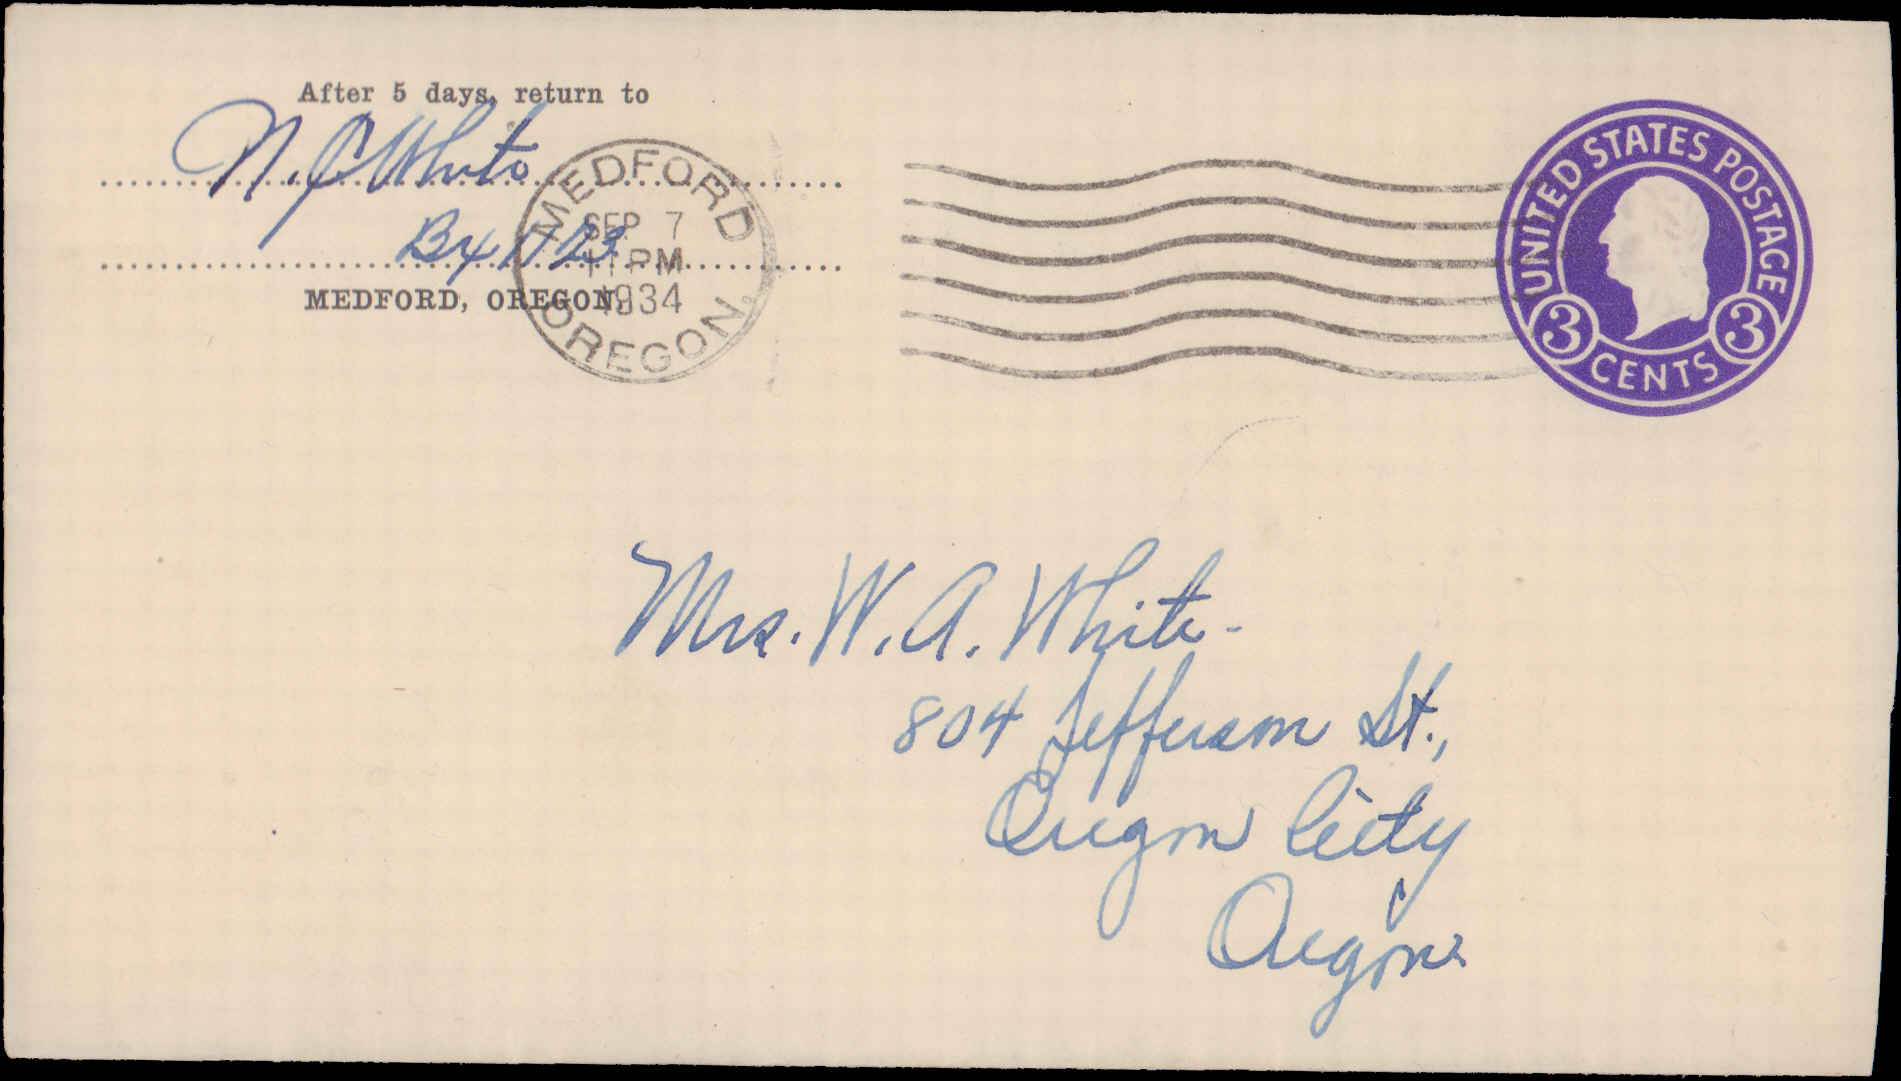 After 5 days, return to
N. C. White
Bx 1123
MEDFORD, OREGON.
MEDFORD
SEP 7
PM
1934
OREGON.
UNITED STATES POSTAGE
3 CENTS 3
Mrs. W. A. White-
804 Jefferson St.,
Oregon City
Oregon.